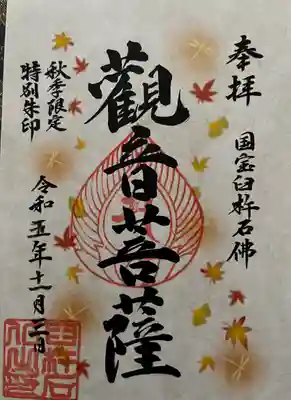 奉拝
国宝臼杵石佛
觀音菩薩
秋季限定
特別朱印
令和五年十一月二日